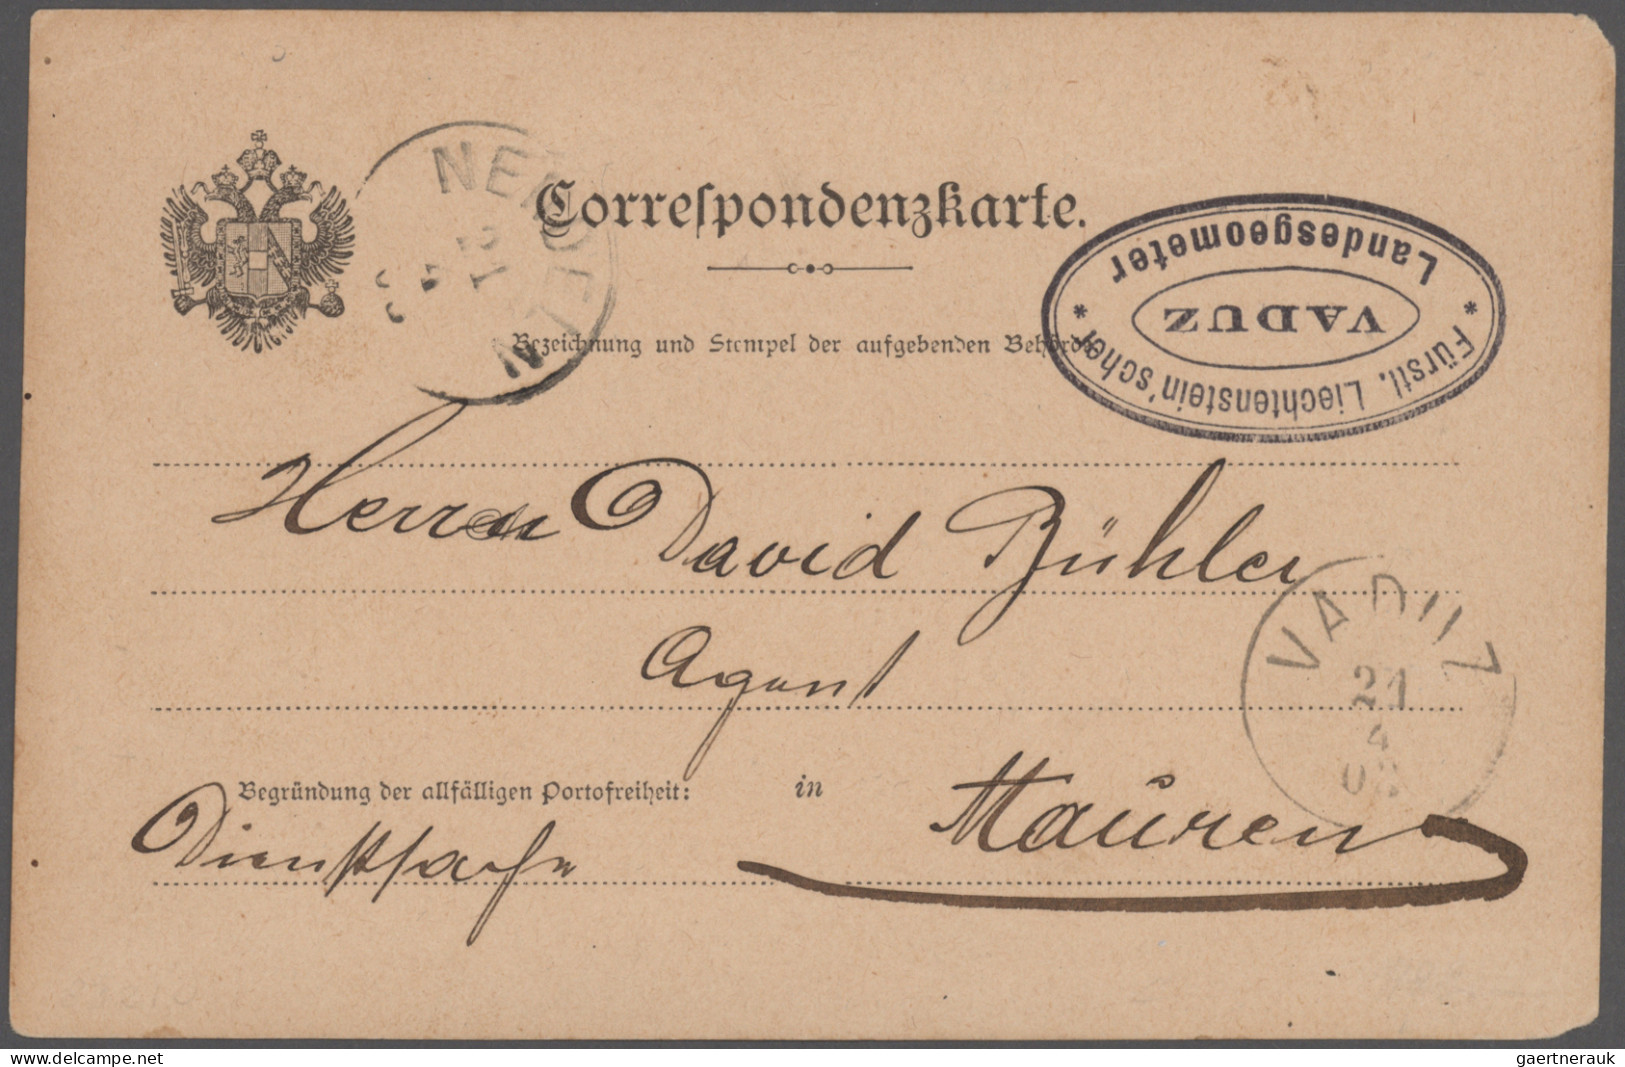 Correspondenzkarte.
NENDELN
21
4
Bezeichnung und Stempel der aufgebenden Behörde
* Fürstl. Liechtenstein'scher *
VADUZ
Landesgeometer
Herrn David Bühler
Agent
VADUZ
21
4
Begründung der allfälligen Portofreiheit: in Mauren
Dienstsache
gaertnerauk